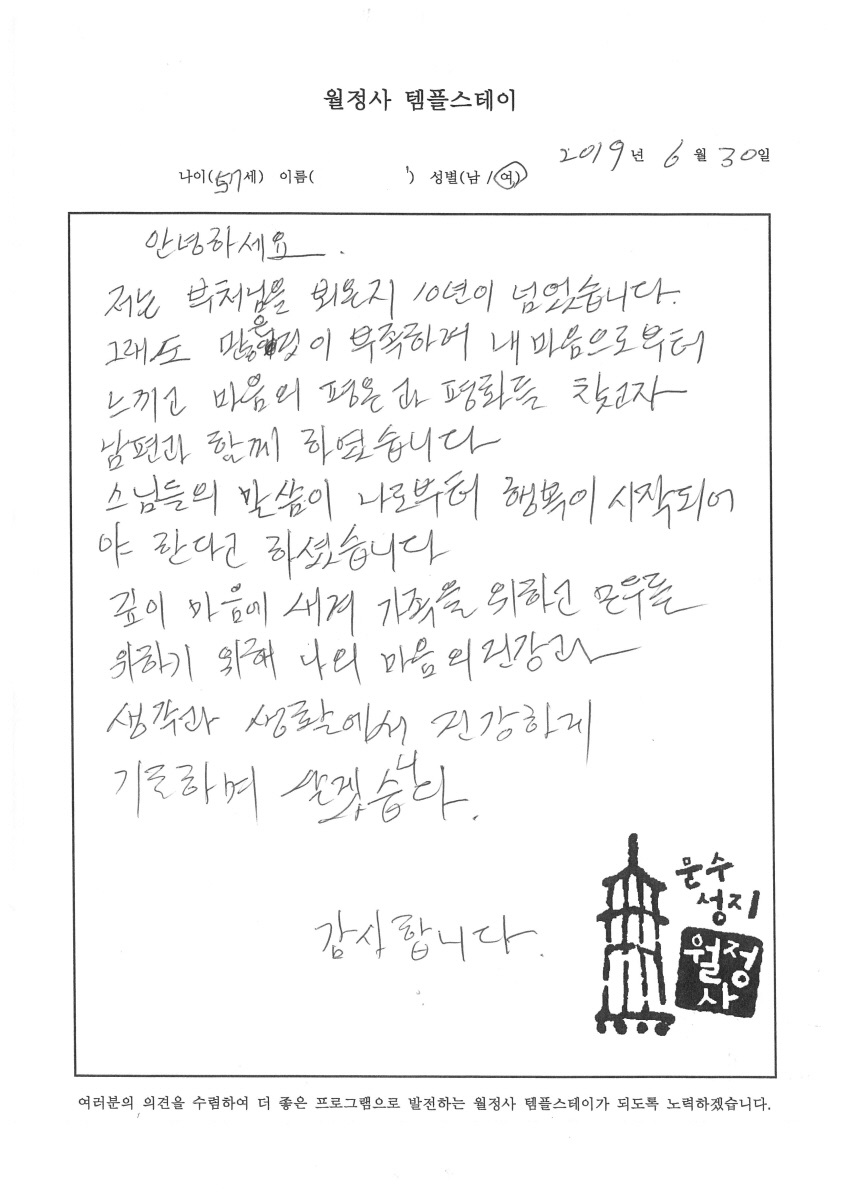 월정사 템플스테이
2019년 6월 30일
나이(57세) 이름( ) 성별(남/여)
안녕하세요.
저는 부처님을 뵈온지 10년이 넘었습니다.
그래도 많은것이 부족하여 내 마음으로부터
느끼고 마음의 평온과 평화를 찾고자
남편과 함께 하였습니다
스님들의 말씀이 나로부터 행복이 시작되어
야 한다고 하셨습니다
깊이 마음에 새겨 가족을 위하고 모두를
위하기 위해 나의 마음의 건강과
생각과 생활에서 건강하게
기도하며 살겠습니다.
감사합니다.
문수
성지
월정
사
여러분의 의견을 수렴하여 더 좋은 프로그램으로 발전하는 월정사 템플스테이가 되도록 노력하겠습니다.